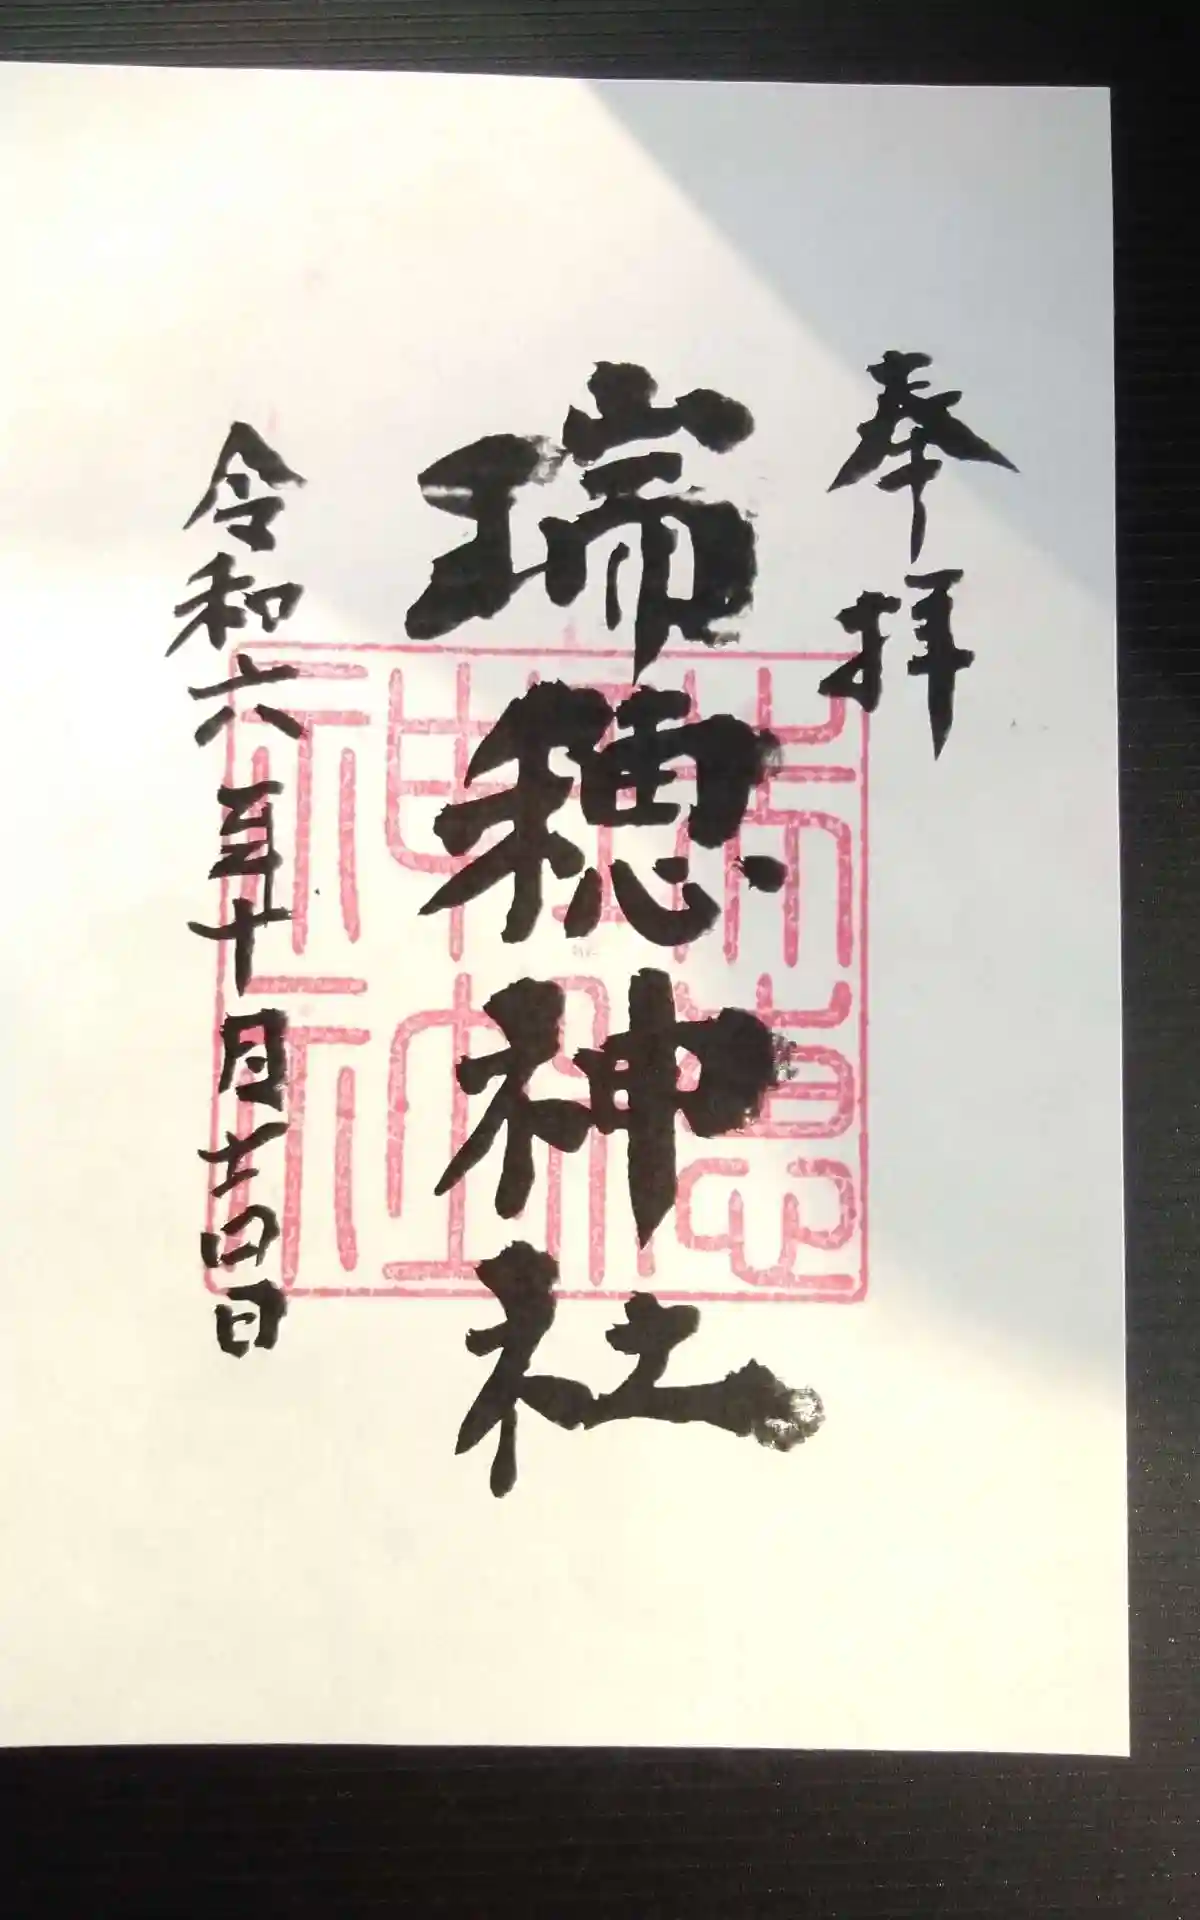 奉拝
瑞穂神社
令和六年十月廿四日
瑞穂神社